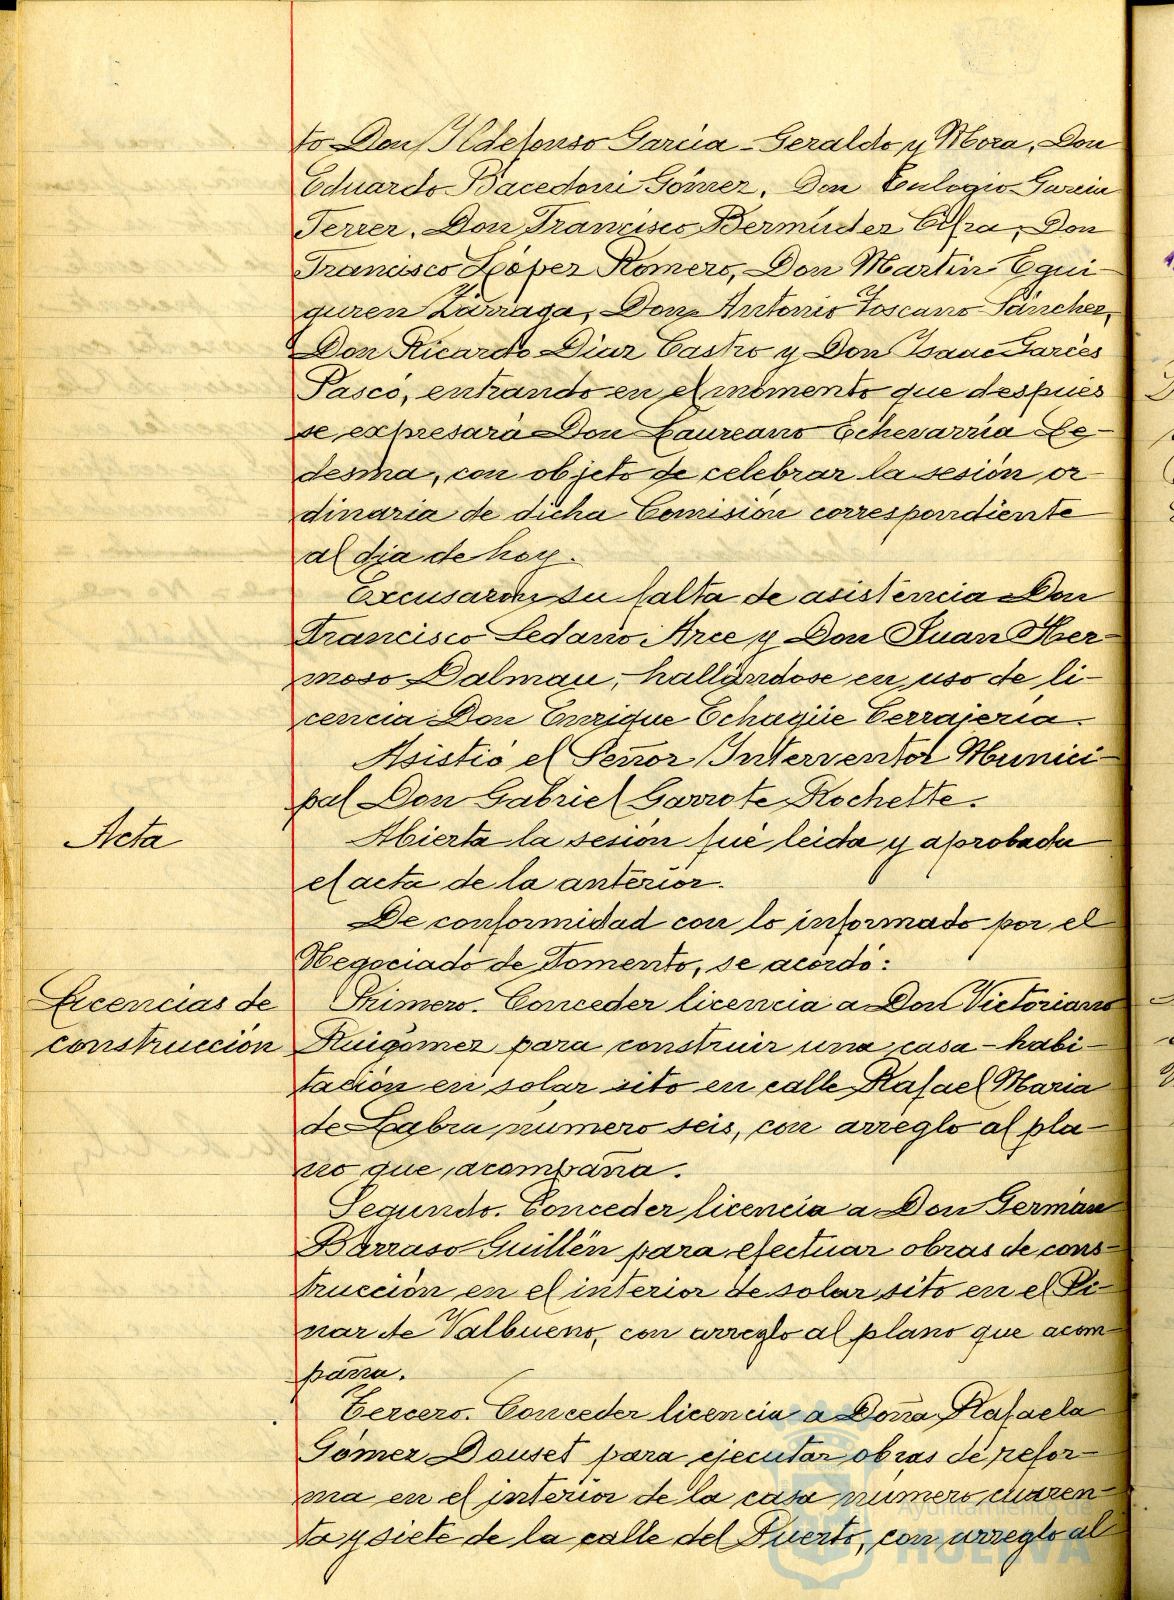 to Don Ildefonso García-Geraldo y Mora, Don
Eduardo Bacedoni Gómez, Don Eulogio García
Ferrer, Don Francisco Bermúdez Cifra, Don
Francisco López Romero, Don Martín Egui-
guren Zárraga, Don Antonio Toscano Sánchez,
Don Ricardo Díaz Castro y Don Isaac Garcés
Pascó, entrando en el momento que después
se expresará Don Laureano Echevarría Le-
desma, con objeto de celebrar la sesión or-
dinaria de dicha Comisión correspondiente
al dia de hoy.
Excusaron su falta de asistencia Don
Francisco Sedano Arce y Don Juan Her-
moso Dalmau, hallándose en uso de li-
cencia Don Enrique Echagüe Cerrajería.
Asistió el Señor Interventor Munici-
pal Don Gabriel Garrote Rochette.
Acta
Abierta la sesión fué leida y aprobada
el acta de la anterior.
De conformidad con lo informado por el
Negociado de Fomento, se acordó:
Licencias de
construcción
Primero. Conceder licencia a Don Victoriano
Ruigómez para construir una casa-habi-
tación en solar sito en calle Rafael María
de Labra número seis, con arreglo al pla-
no que acompaña.
Segundo. Conceder licencia a Don Germán
Barraso Guillén para efectuar obras de cons-
trucción en el interior de solar sito en el Pi-
nar de Valbueno, con arreglo al plano que acom-
paña.
Tercero. Conceder licencia a Doña Rafaela
Gómez Douset para ejecutar obras de refor-
ma en el interior de la casa número cuaren-
ta y siete de la calle del Puerto, con arreglo al
Ayuntamiento de
HUELVA